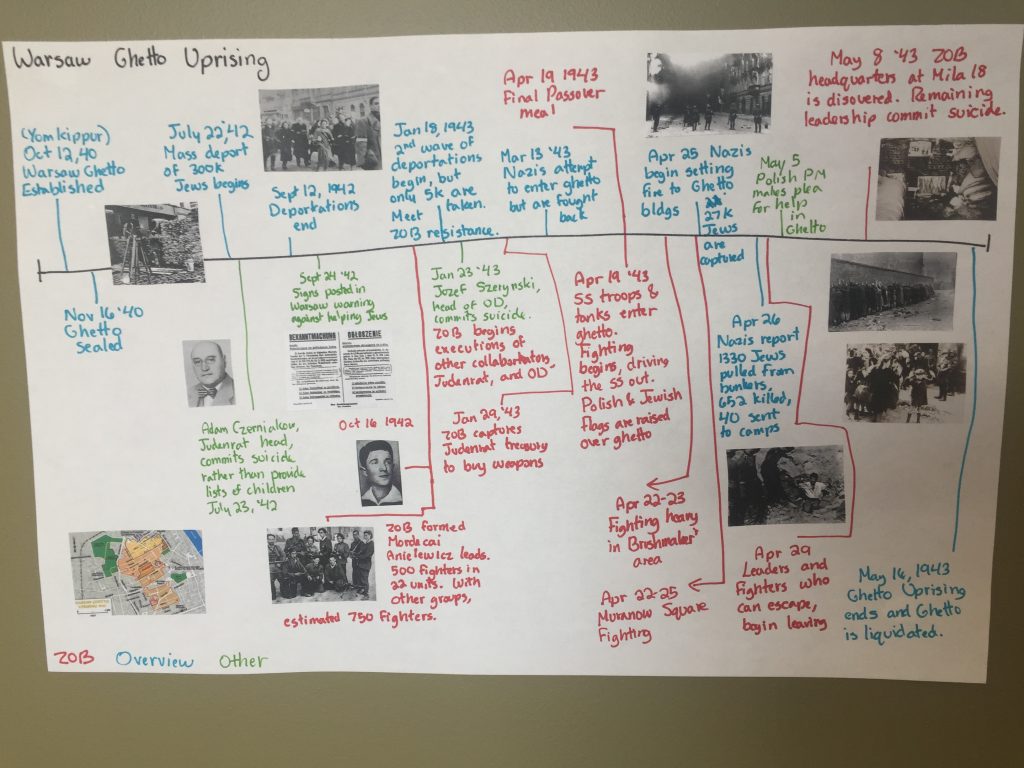 Warsaw Ghetto Uprising
(Yom Kippur)
Oct 12, 40
Warsaw Ghetto
Established
July 22, '42
Mass deport
of 300k
Jews begins
Sept 12, 1942
Deportations
end
Jan 18, 1943
2nd wave of
deportations
begin, but
only 5k are
taken.
Meet
ZOB resistance.
Mar 13 '43
Nazis attempt
to enter ghetto
but are fought
back
Apr 19 1943
Final Passover
meal
Apr 25 Nazis
begin setting
fire to Ghetto
bldgs
27k
Jews
are
captured
May 5
Polish PM
makes plea
for help
in
Ghetto
May 8 '43 ZOB
headquarters at Mila 18
is disovered. Remaining
leadership commit suicide.
Nov 16 '40
Ghetto
Sealed
Adam Czerniakow,
Judenrat head,
commits suicide
rather than provide
lists of children
July 23, '42
Sept 24 '42
Signs posted in
Warsaw warning
against helping Jews
BEKANNTMACHUNG
OGŁOSZENIE
Oct 16 1942
ZOB formed
Mordecai
Anielewicz leads.
500 fighters in
22 units. With
other groups,
estimated 750 fighters.
Jan 23 '43
Jozef Szerynski,
head of OD,
commits suicide.
ZOB begins
executions of
other collaborators,
Judenrat, and OD
Jan 29, '43
ZOB captures
Judenrat treasury
to buy weapons
Apr 19 '43
SS troops &
tanks enter
ghetto.
Fighting
begins, driving
the SS out.
Polish & Jewish
flags are raised
over ghetto
Apr 22-23
Fighting heavy
in Brushmaker's
area
Apr 22-25
Muranow Square
Fighting
Apr 26
Nazis report
1330 Jews
pulled from
bunkers,
652 killed,
40 sent
to camps
Apr 29
Leaders and
Fighters who
can escape,
begin leaving
May 16, 1943
Ghetto Uprising
ends and Ghetto
is liquidated.
ZOB Overview Other